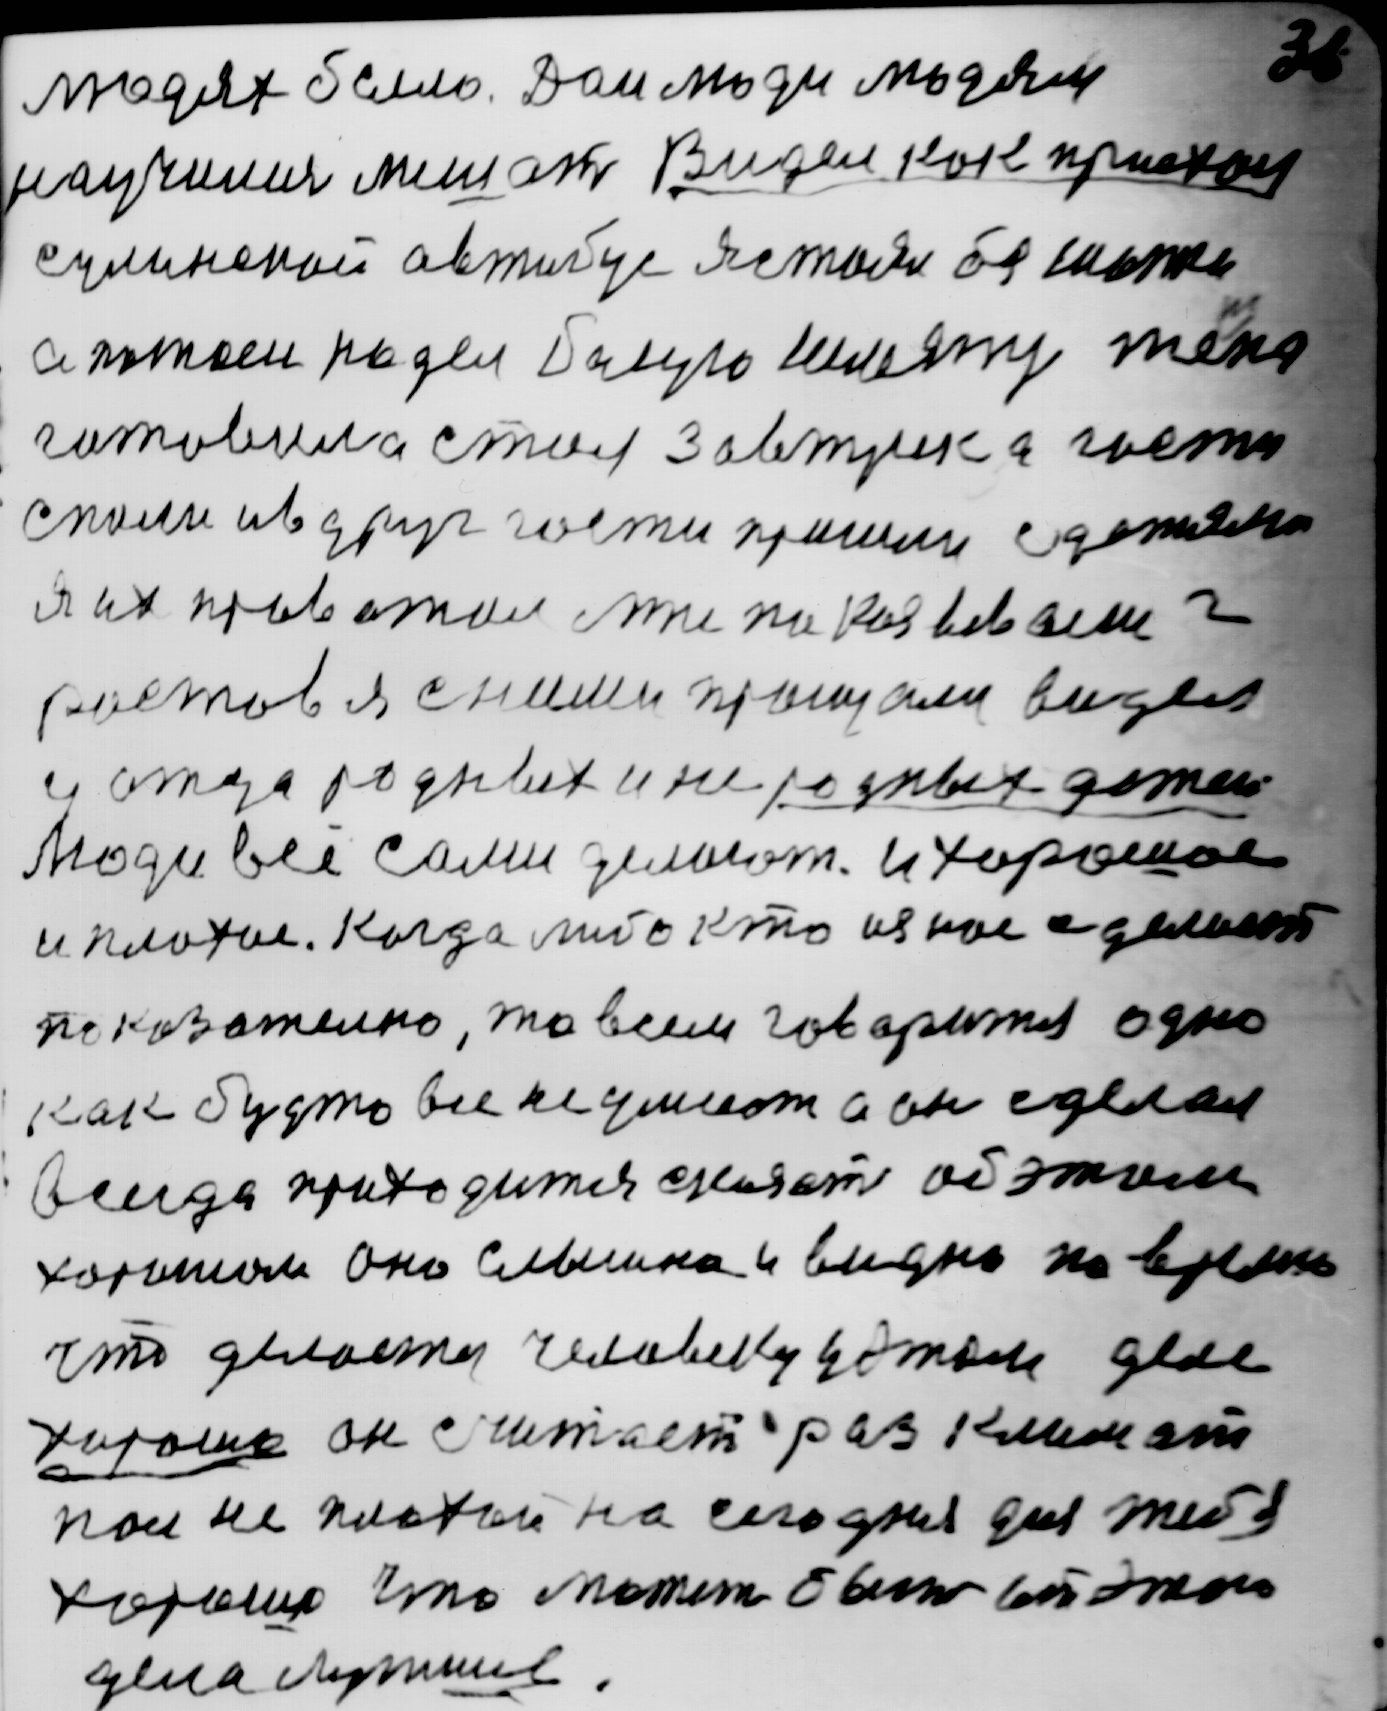 36
людях было. Дом люди людям
научился мешать Видел как приехал
сулинской автобус я стоял бз шапки
а потом надел белую шляпу жена
готовила стол завтрек а гости
спали и вдруг гости пришли с
я их провожал мне показывали г
ростов я с ними прощали видел
у отца родных и не родных дотей
Люди всё сами делают. и хорошое
и плохое. Когда либо кто из нас сделает
показателно, то всем говорится одно
как будто все не умеют а он сделал
всегда приходится сказать об этом
хорошом оно слышно и видно
что делается человеку у этом деле
хорошо он считает раз климат
нам не плохой на сегодня для тебя
хорошо что может быть от этого
дела лутшие.